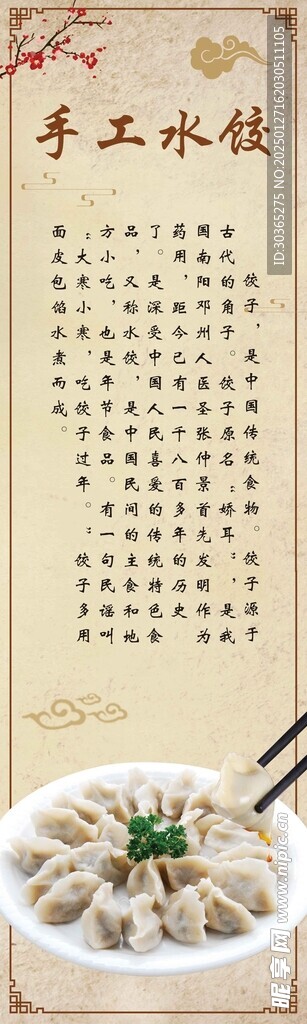 手工水饺
饺子，是中国传统食物。饺子源于
古代的角子。饺子原名“娇耳”，是我
国南阳邓州人医圣张仲景首先发明作为
药用，距今已有一千八百多年的历史
了。是深受中国人民喜爱的传统特色食
品，又称水饺，是中国民间的主食和地
方小吃，也是年节食品。有一句民谣叫
“大寒小寒，吃饺子过年。”饺子多用
面皮包馅水煮而成。
ID:30365275 NO:20250127162030511105
昵享网 www.nipic.cn